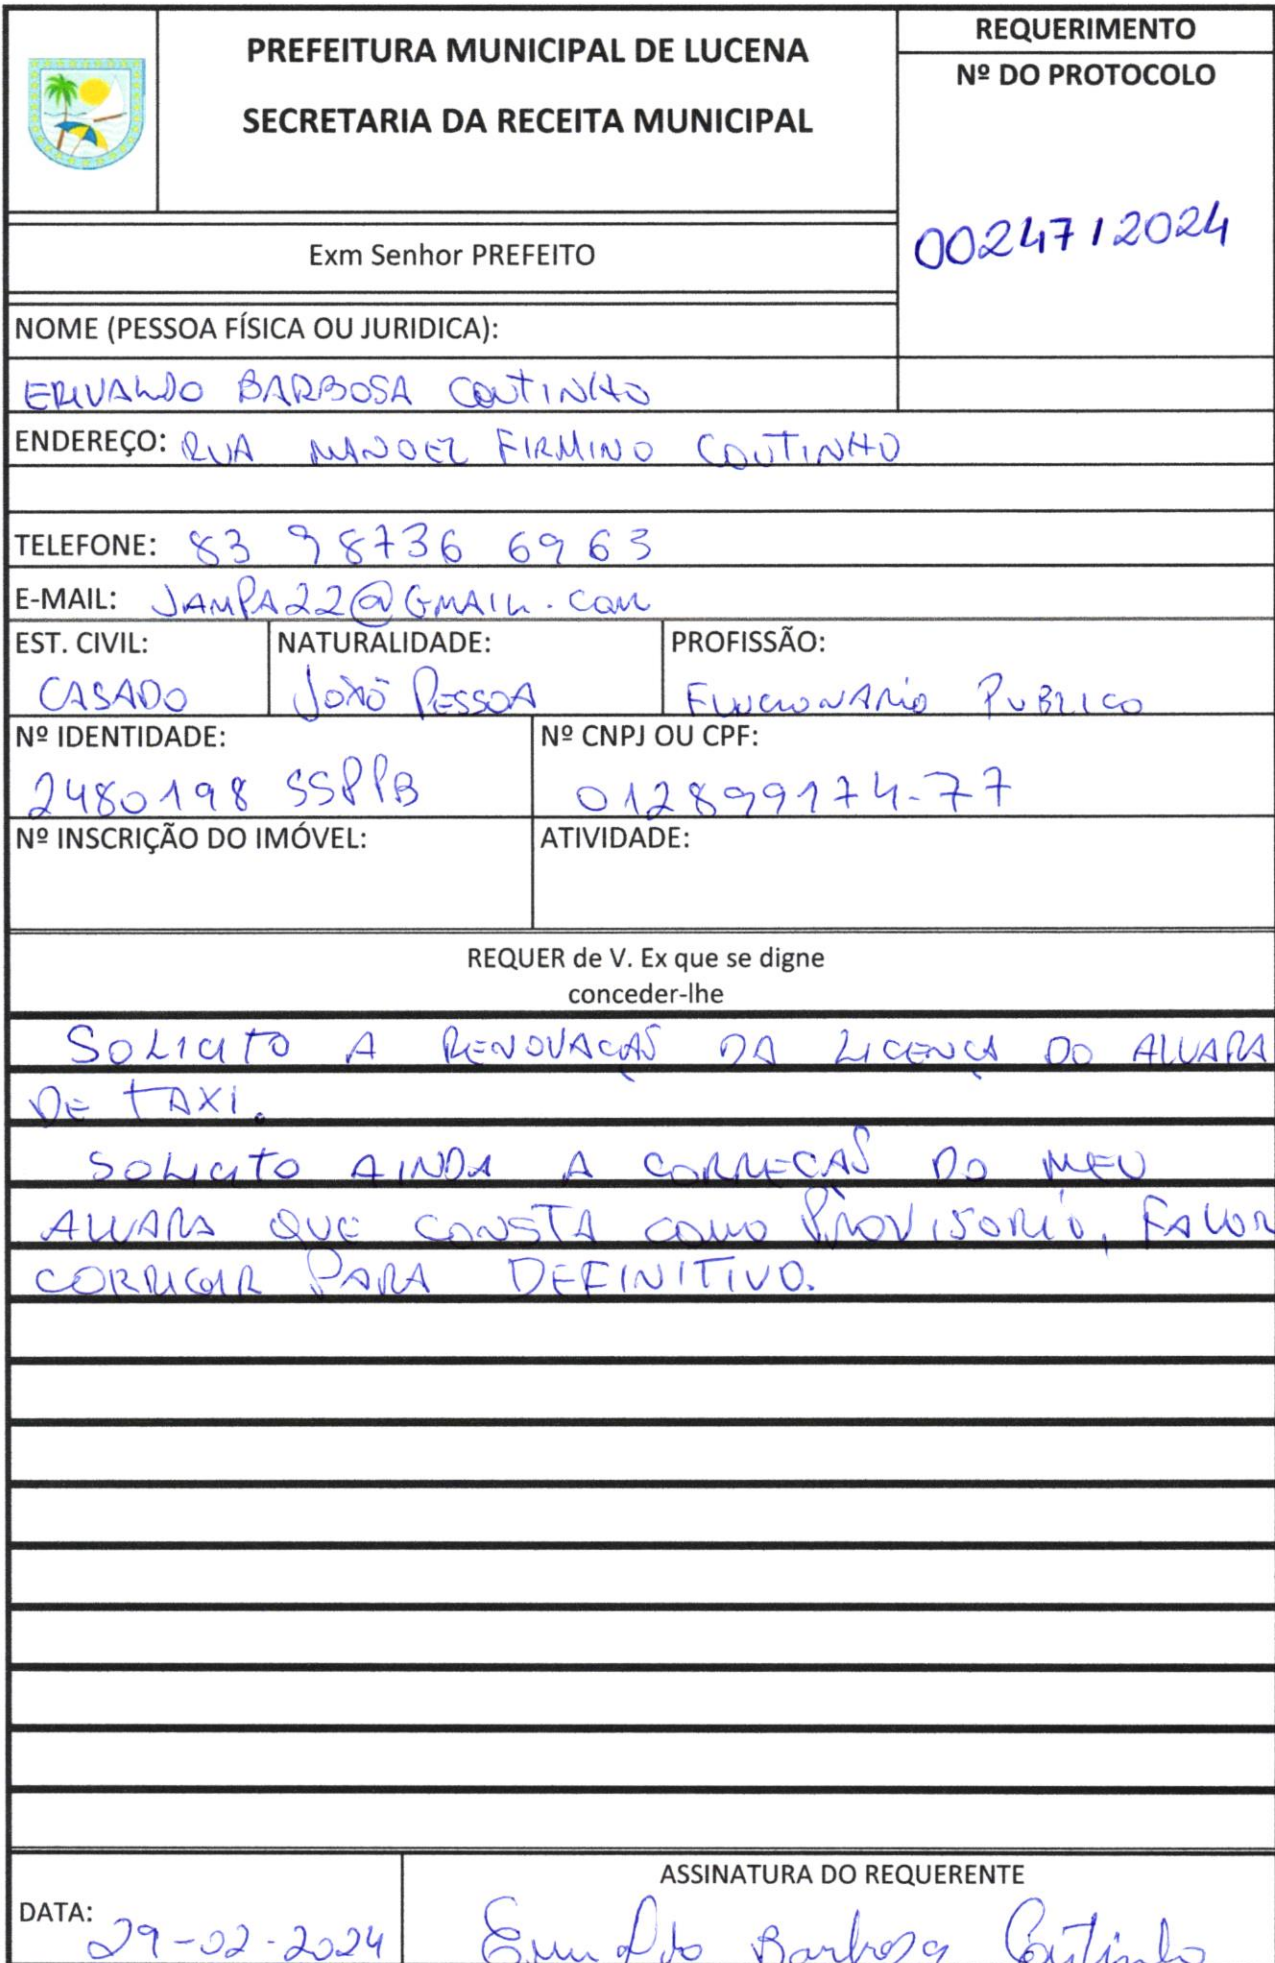 PREFEITURA MUNICIPAL DE LUCENA
SECRETARIA DA RECEITA MUNICIPAL
REQUERIMENTO
Nº DO PROTOCOLO
00247/2024
Exm Senhor PREFEITO
NOME (PESSOA FÍSICA OU JURIDICA):
ERIVALDO BARBOSA COUTINHO
ENDEREÇO: RUA MANOEL FIRMINO COUTINHO
TELEFONE: 83 98736 6963
E-MAIL: JAMPA22@GMAIL.COM
EST. CIVIL: NATURALIDADE: PROFISSÃO:
CASADO JOÃO PESSOA FUNCIONARIO PUBLICO
Nº IDENTIDADE: Nº CNPJ OU CPF:
2480198 SSPPB 012899174-77
Nº INSCRIÇÃO DO IMÓVEL: ATIVIDADE:
REQUER de V. Ex que se digne
conceder-lhe
SOLICITO A RENOVAÇÃO DA LICENÇA DO ALVARA
DE TAXI.
SOLICITO AINDA A CORRECAÕ DO MEU
ALVARA QUE CONSTA COMO PROVISORIO, FAVOR
CORRIGIR PARA DEFINITIVO.
ASSINATURA DO REQUERENTE
DATA: 29-02-2024 Erivaldo Barbosa Coutinho